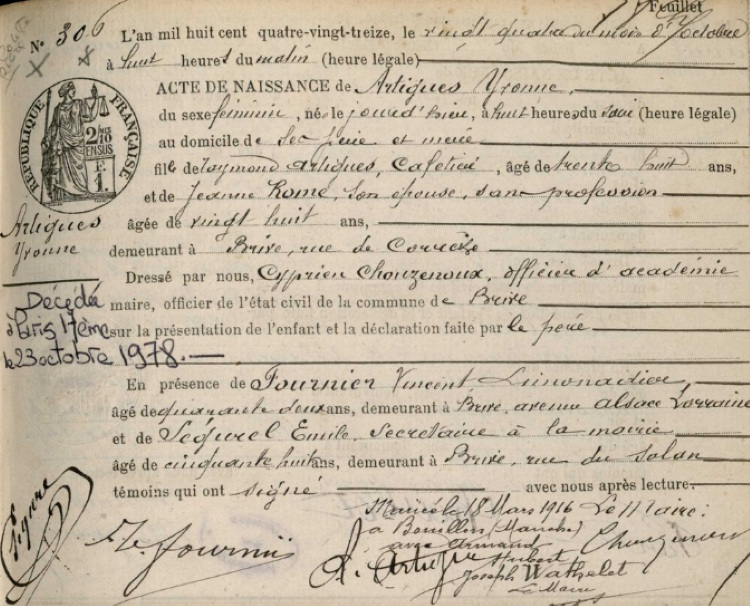 Feuillet
N° 306
L'an mil huit cent quatre-vingt-treize, le vingt quatre du mois d'octobre
à huit heures du matin (heure légale)
ACTE DE NAISSANCE de Artigues Yvonne
du sexe féminin, née le jour d'hier, à huit heures du soir (heure légale)
au domicile de ses père et mère
fille de Raymond Artigues, Cafetier, âgé de trente huit ans,
et de Jeanne Rome, son épouse, sans profession
âgée de vingt huit ans,
demeurant à Brive, rue de Corrèze
Dressé par nous, Cyprien Chouzenoux, officier d'académie
maire, officier de l'état civil de la commune de Brive
sur la présentation de l'enfant et la déclaration faite par le père
En présence de Fournier Vincent Limonadier,
âgé de quarante deux ans, demeurant à Brive, avenue Alsace Lorraine
et de Ségurel Emile, Secrétaire à la mairie
âgé de cinquante huit ans, demeurant à Brive, rue du Salan
témoins qui ont signé avec nous après lecture.
RÉPUBLIQUE FRANÇAISE
2/10 EN SUS
F. 1.
Artigues
Yvonne
Décédée
à Paris 17ème
le 23 octobre 1978.
Mariée le 18 Mars 1916
à Bouillon
avec Armand
Hubert
Joseph Wathelet
Le Maire
Le Maire:
Fournier